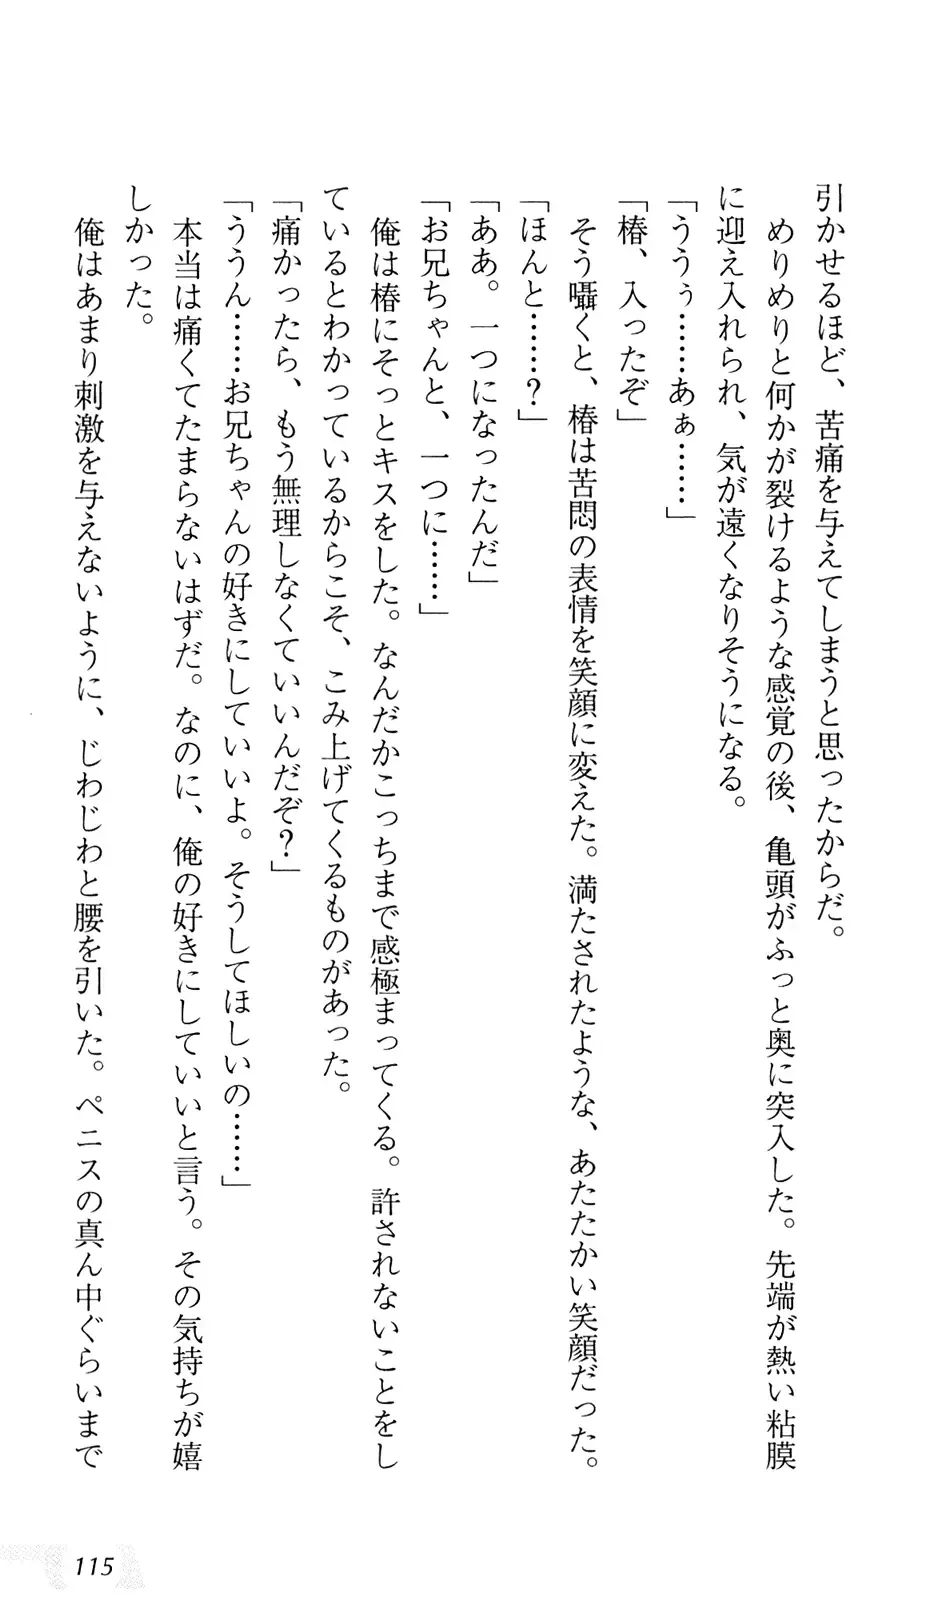 引かせるほど、苦痛を与えてしまうと思ったからだ。
めりめりと何かが裂けるような感覚の後、亀頭がふっと奥に突入した。先端が熱い粘膜
に迎え入れられ、気が遠くなりそうになる。
「ううぅ……あぁ……」
「椿、入ったぞ」
そう囁くと、椿は苦悶の表情を笑顔に変えた。満たされたような、あたたかい笑顔だった。
「ほんと……？」
「ああ。一つになったんだ」
「お兄ちゃんと、一つに……」
俺は椿にそっとキスをした。なんだかこっちまで感極まってくる。許されないことをし
ているとわかっているからこそ、こみ上げてくるものがあった。
「痛かったら、もう無理しなくていいんだぞ？」
「ううん……お兄ちゃんの好きにしていいよ。そうしてほしいの……」
本当は痛くてたまらないはずだ。なのに、俺の好きにしていいと言う。その気持ちが嬉
しかった。
俺はあまり刺激を与えないように、じわじわと腰を引いた。ペニスの真ん中ぐらいまで
115